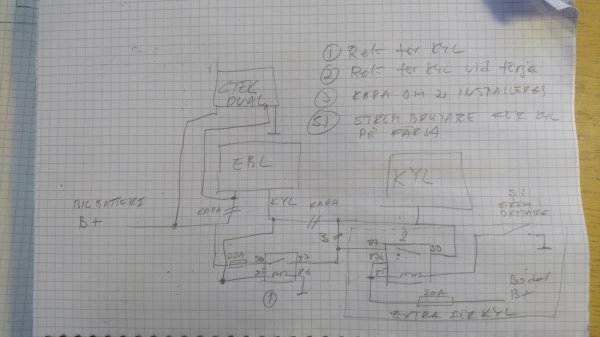 ① Relä för KYL
② Relä för KYL vid färja
③ KAPA OM 2 INSTALLERAS
S1 STRÖMBRYTARE FÖR KYL
PÅ FÄRJA
CTEK
DUAL
EBL
KYL
BIL BATTERI
B+
KAPA
KYL
KAPA
S1
STRÖM
BRYTARE
3
2
87
30
87a
85
20A
30
87
85
①
20A
Bodel
B+
EXTRA FÖR KYL